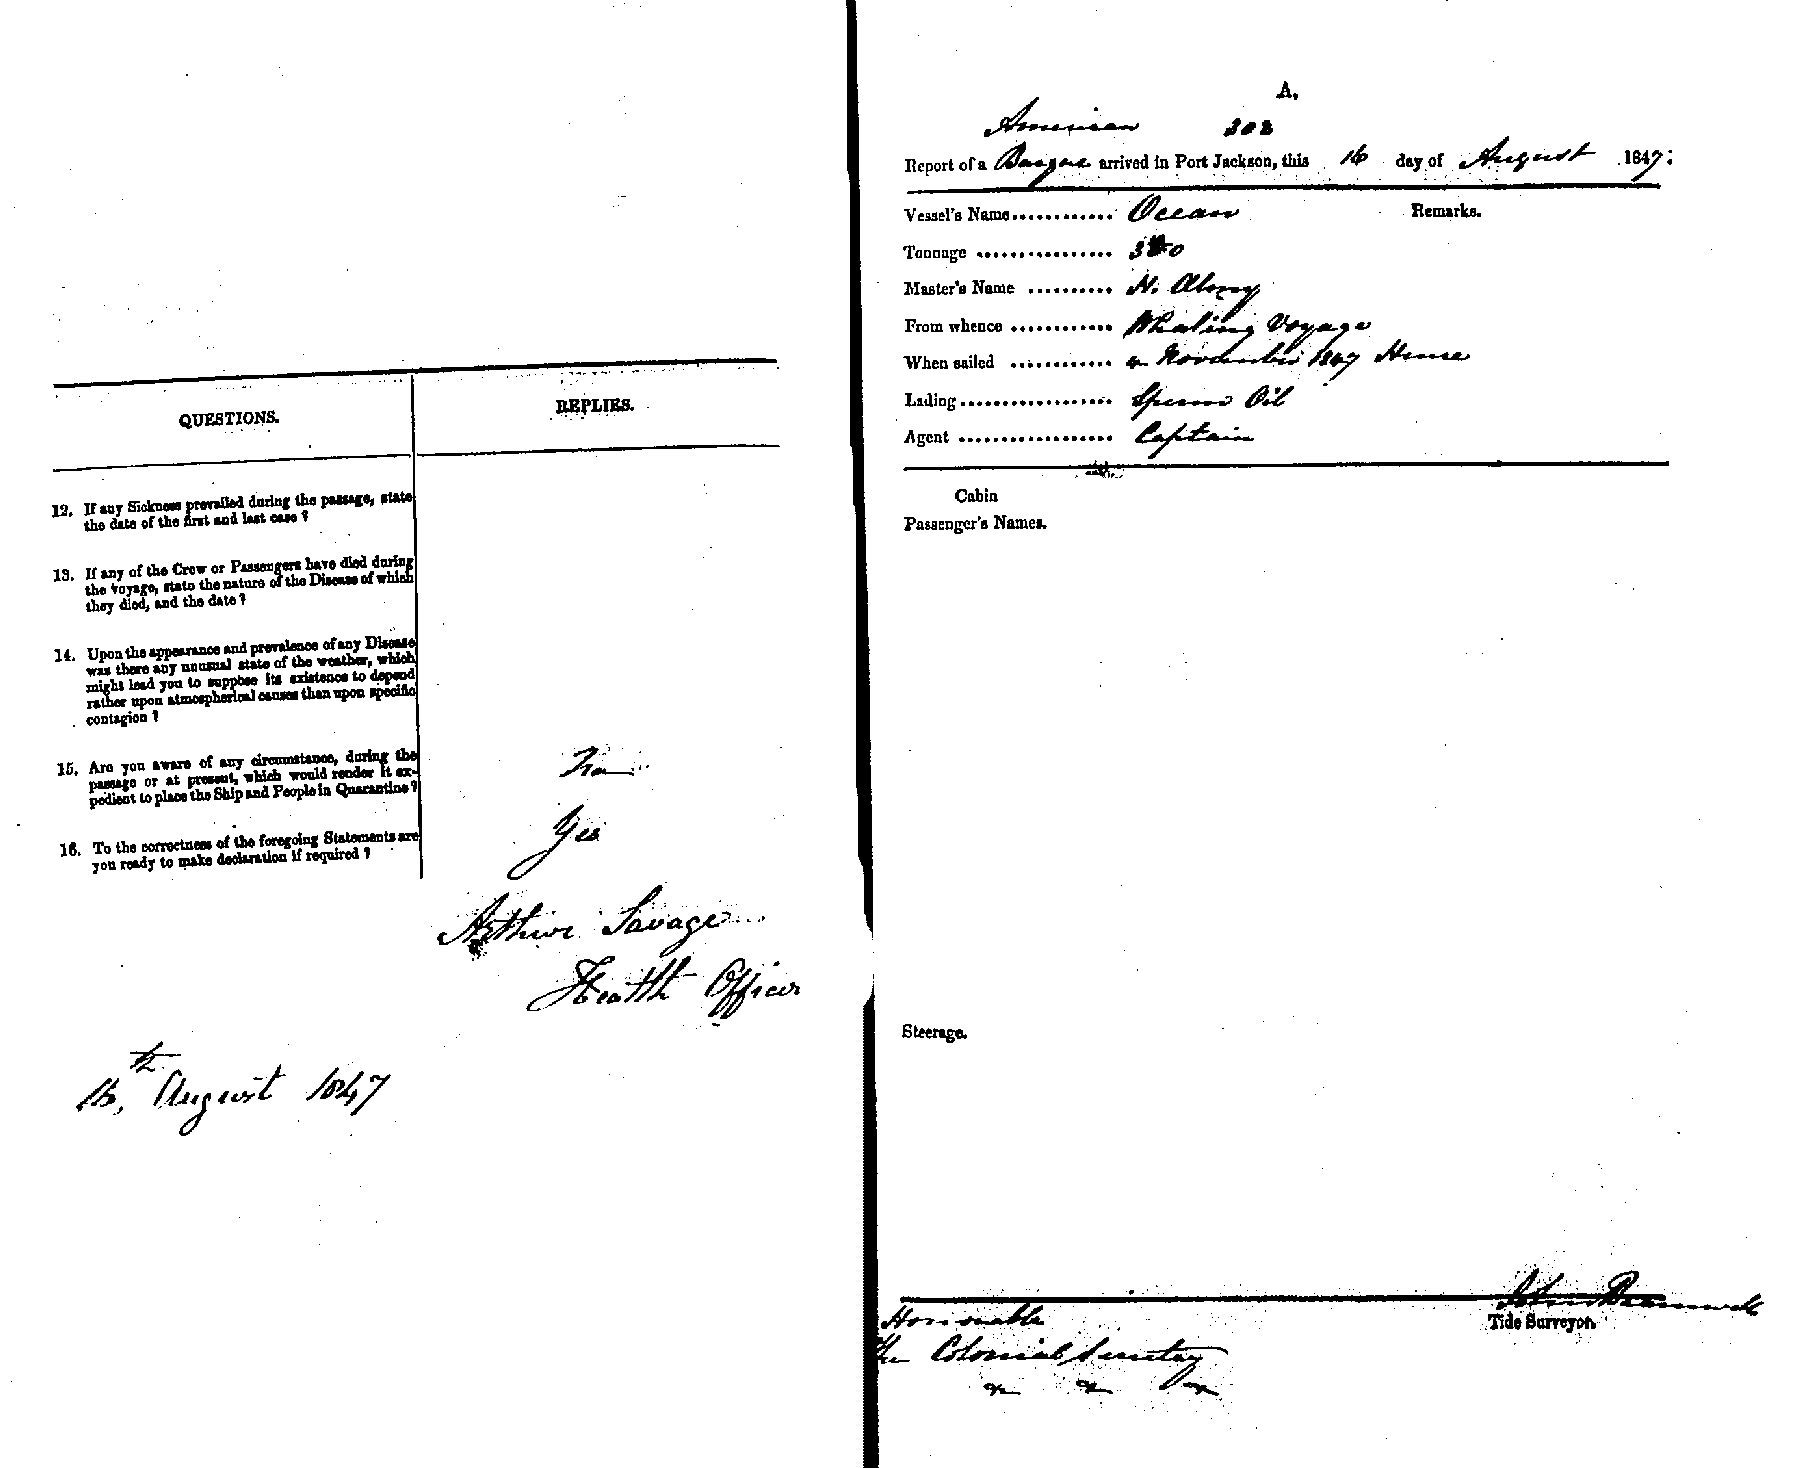 QUESTIONS.
REPLIES.
12. If any Sickness prevailed during the passage, state
the date of the first and last case ?
13. If any of the Crew or Passengers have died during
the voyage, state the nature of the Disease of which
they died, and the date ?
14. Upon the appearance and prevalence of any Disease
was there any unusual state of the weather, which
might lead you to suppose its existence to depend
rather upon atmospherical causes than upon specific
contagion ?
15. Are you aware of any circumstance, during the
passage or at present, which would render it ex-
pedient to place the Ship and People in Quarantine ?
16. To the correctness of the foregoing Statements are
you ready to make declaration if required ?
Yes
Arthur Savage
Health Officer
16, th August 1847
A.
American 302
Report of a Barque arrived in Port Jackson, this 16 day of August 1847:
Vessel's Name............ Ocean Remarks.
Tonnage ................
Master's Name ..........
From whence ............ Whaling Voyage
When sailed ............ November
Lading.................... Sperm Oil
Agent .................... Captain
Cabin
Passenger's Names.
Steerage.
John Bramwell
Tide Surveyor.
Honorable
The Colonial Secretary